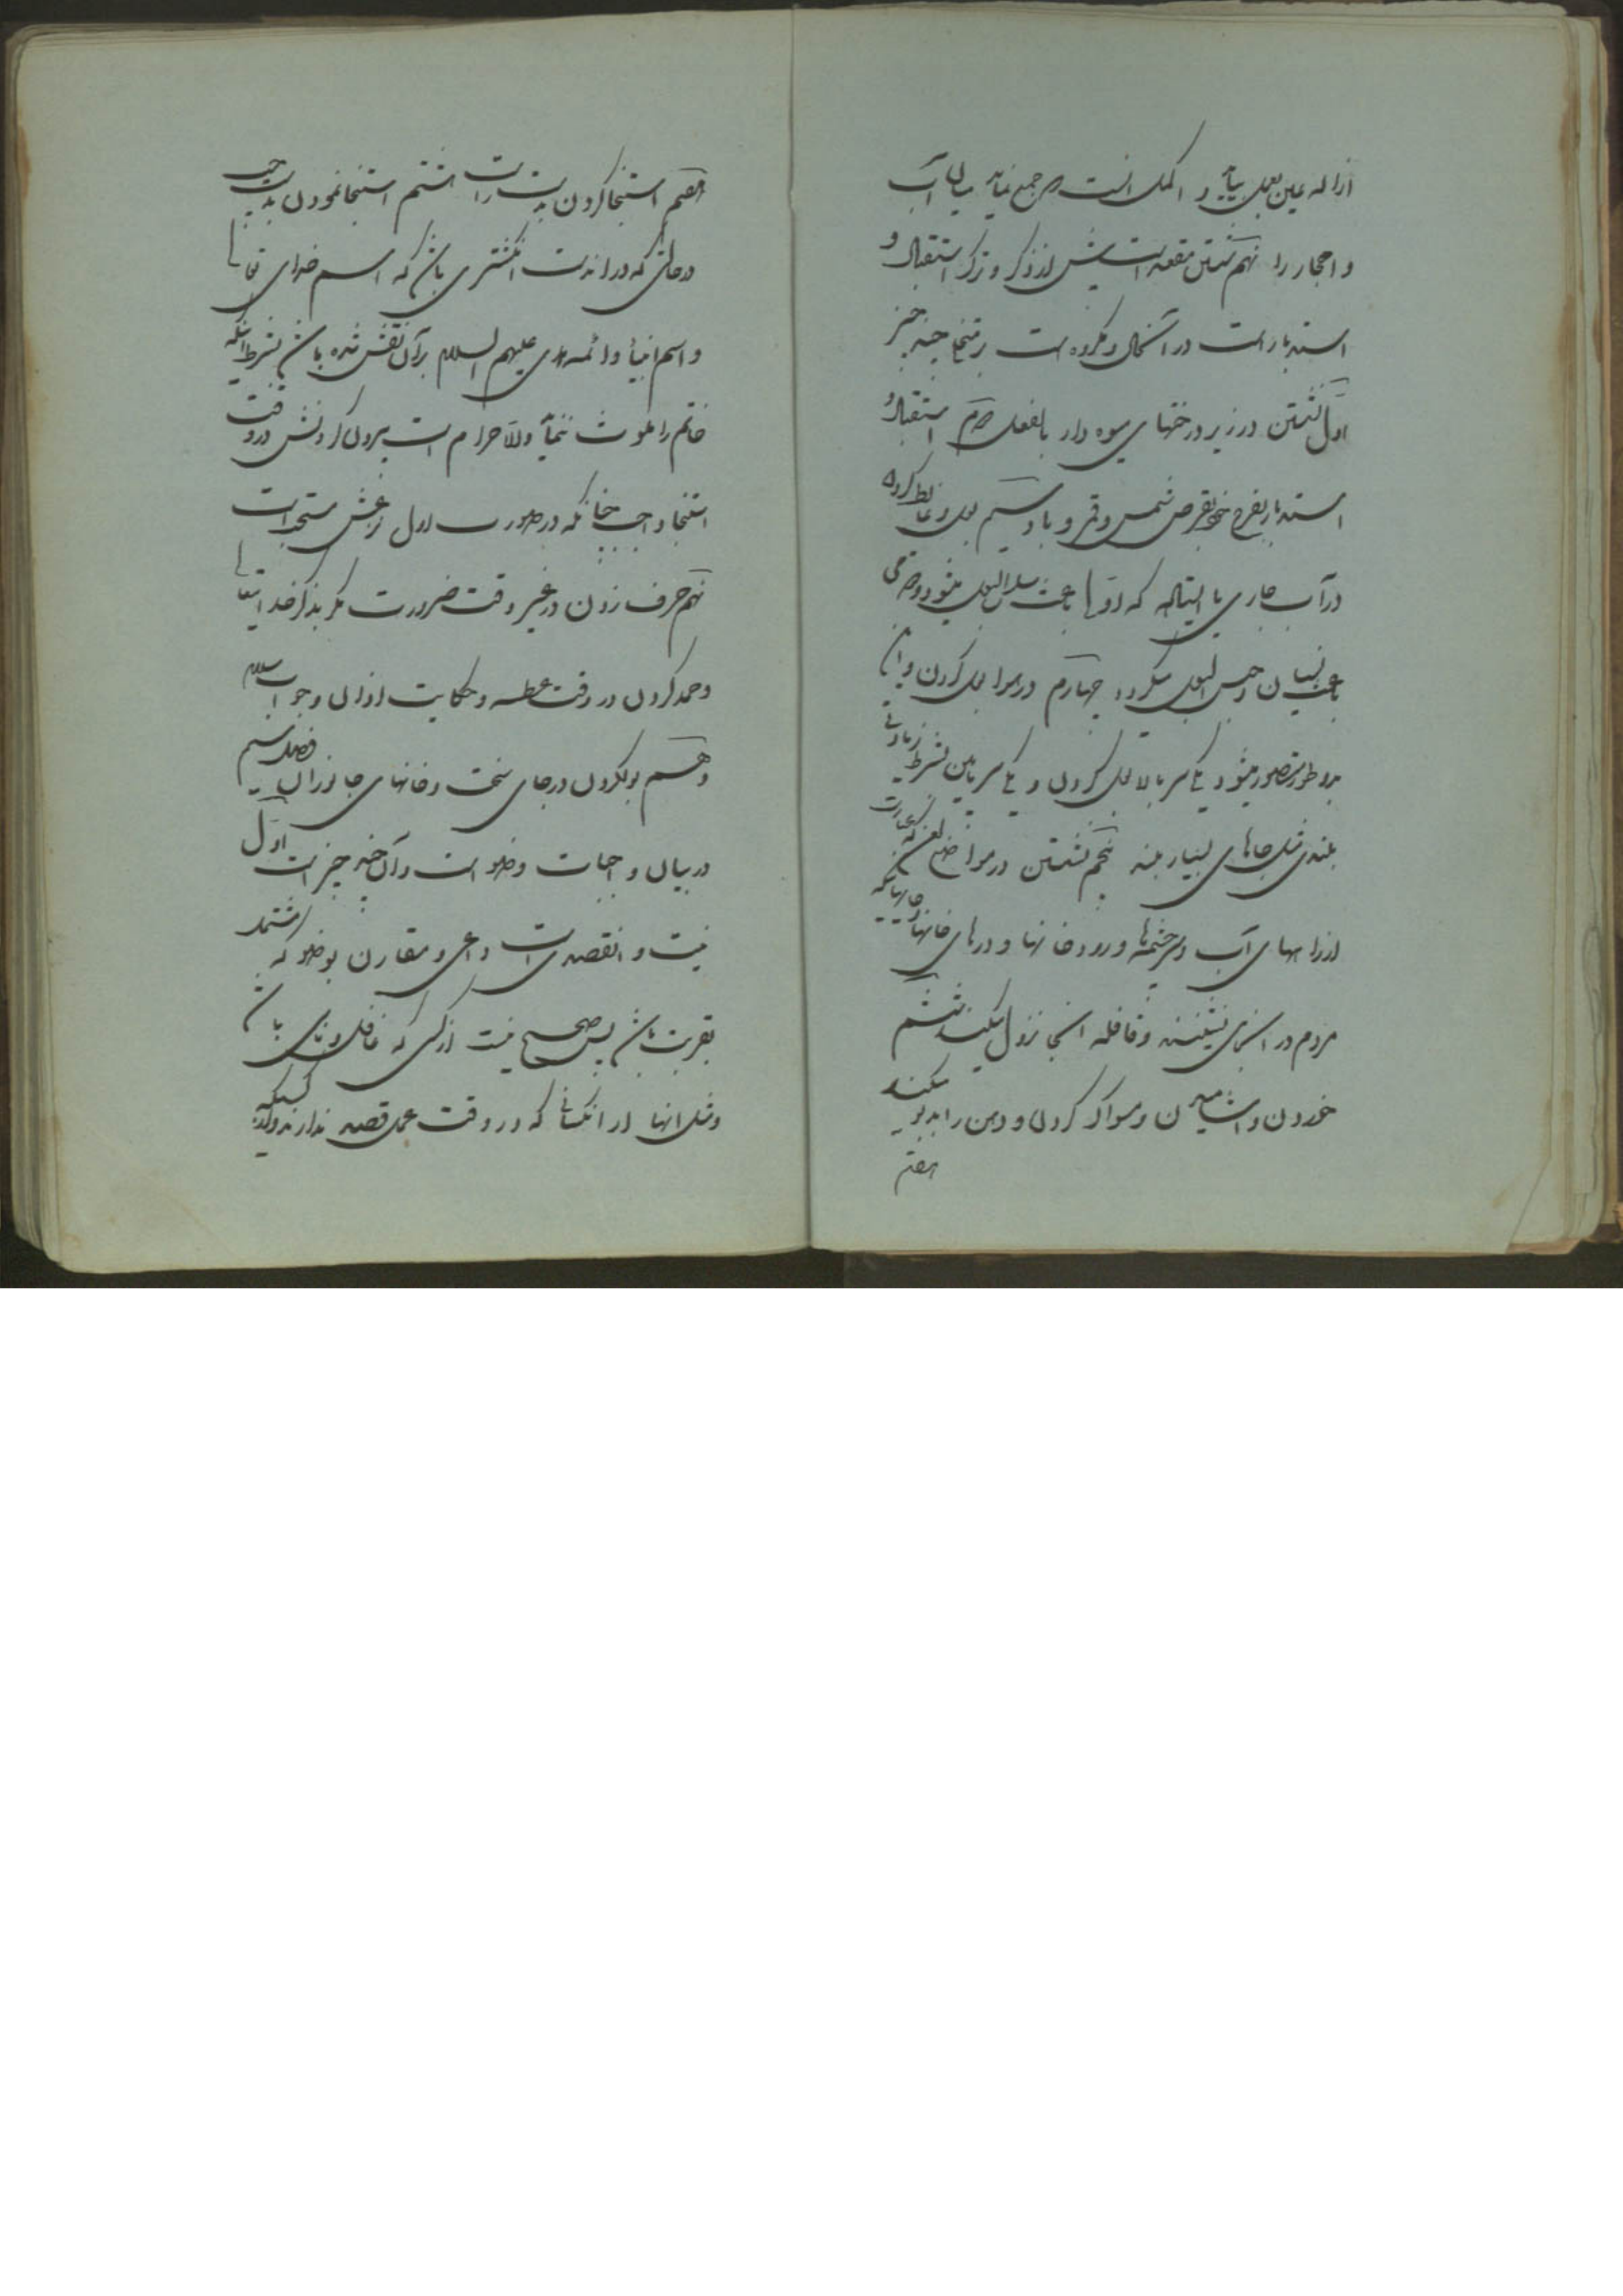 ازاله عین بعمل بیاید و اکمل انست که جمع نماید میان آب
و احجار را نهم شستن مقعد است پیش از ذکر و ترک استقبال و
استدبار است در آنحال و مکروه است در تخلی چند چیز
اول نشستن در زیر درختهای میوه دار بالفعل دویم استقبال و
استدبار بفرج خود بقرص شمس و قمر و باد سیم بول و غایط کردن
در آب جاری یا ایستاده که اول باعث سلس البول میشود و دویمی
باعث نسیان و حبس البول میگردد چهارم در هوا بول کردن و آن
بدو طور متصور میشود یکی سر بالا بول کردن و یکی سر پایین بشرط زیادتی
بلندی مثل جاهای بسیار بلند پنجم نشستن در مواضع لعن که عبارتست
از راههای آب و سرچشمه ها و رودخانها و درهای خانها و جاهائیکه
مردم در آنجا می نشینند و قافله آنجا نزول میکنند ششم
خوردن و آشامیدن و مسواک کردن و دهن را بدبو میکند
هفتم
هفتم استنجا کردن بدست راست هشتم استنجا نمودن بدست چپ
در حالتی که در اندست انگشتری باشد که اسم خدای تعالی
و اسم انبیا و ائمه هدی علیهم السلام بر آن نقش شده باشد بشرط آنکه
خاتم را ملوث ننماید و الا حرام است بیرون کردنش در وقت
استنجا واجب چنانکه در صورت اول نزعش مستحب است
نهم حرف زدن در غیر وقت ضرورت مگر بذکر خدایتعالی
و حمد کردن در وقت عطسه و حکایت اذان و جواب سلام
دهم بول کردن در جای سخت و خانهای جانوران فصل سیم
در بیان واجبات وضو است و آن چند چیز است اول
نیت و آن قصدیست داعی و مقارن بوضو که مشتمل
بقربت باشد پس صحیح نیست از کسی که غافل و ناسی باشد
و مثل آنها از آنکسانی که در وقت عمل قصد ندارند و کسیکه